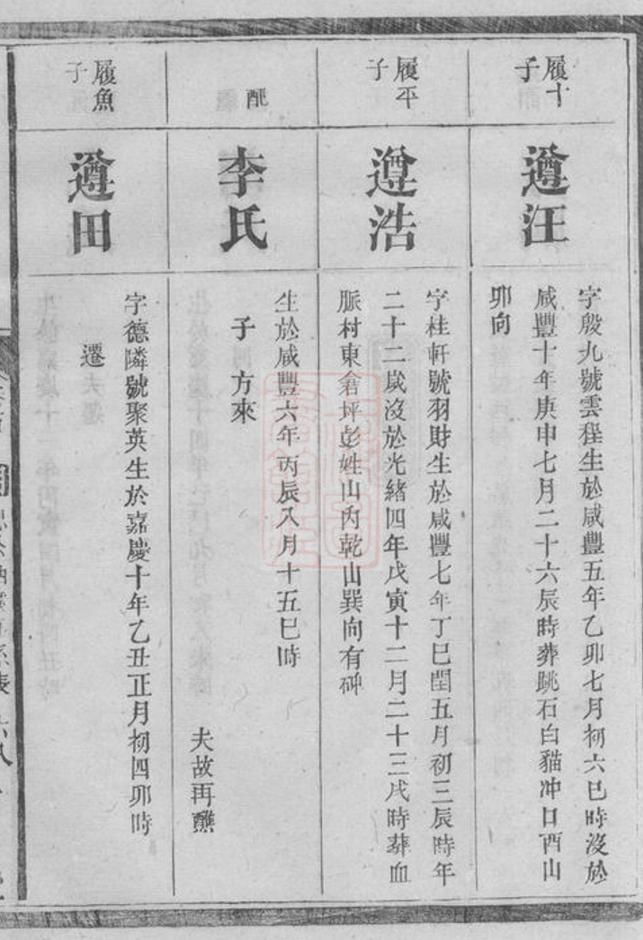 履十
子
遵汪
字殷九號雲程生於咸豐五年乙卯七月初六巳時沒於
咸豐十年庚申七月二十六辰時葬跳石白貓冲口酉山
卯向
履平
子
遵浩
字桂軒號羽財生於咸豐七年丁巳閏五月初三辰時年
二十二歲沒於光緒四年戊寅十二月二十三戌時葬血
脈村東倉坪彭姓山內乾山巽向有碑
配
李氏
生於咸豐六年丙辰八月十五巳時
子方來
夫故再醮
履魚
子
遵田
字德隣號聚英生於嘉慶十年乙丑正月初四卯時
遷